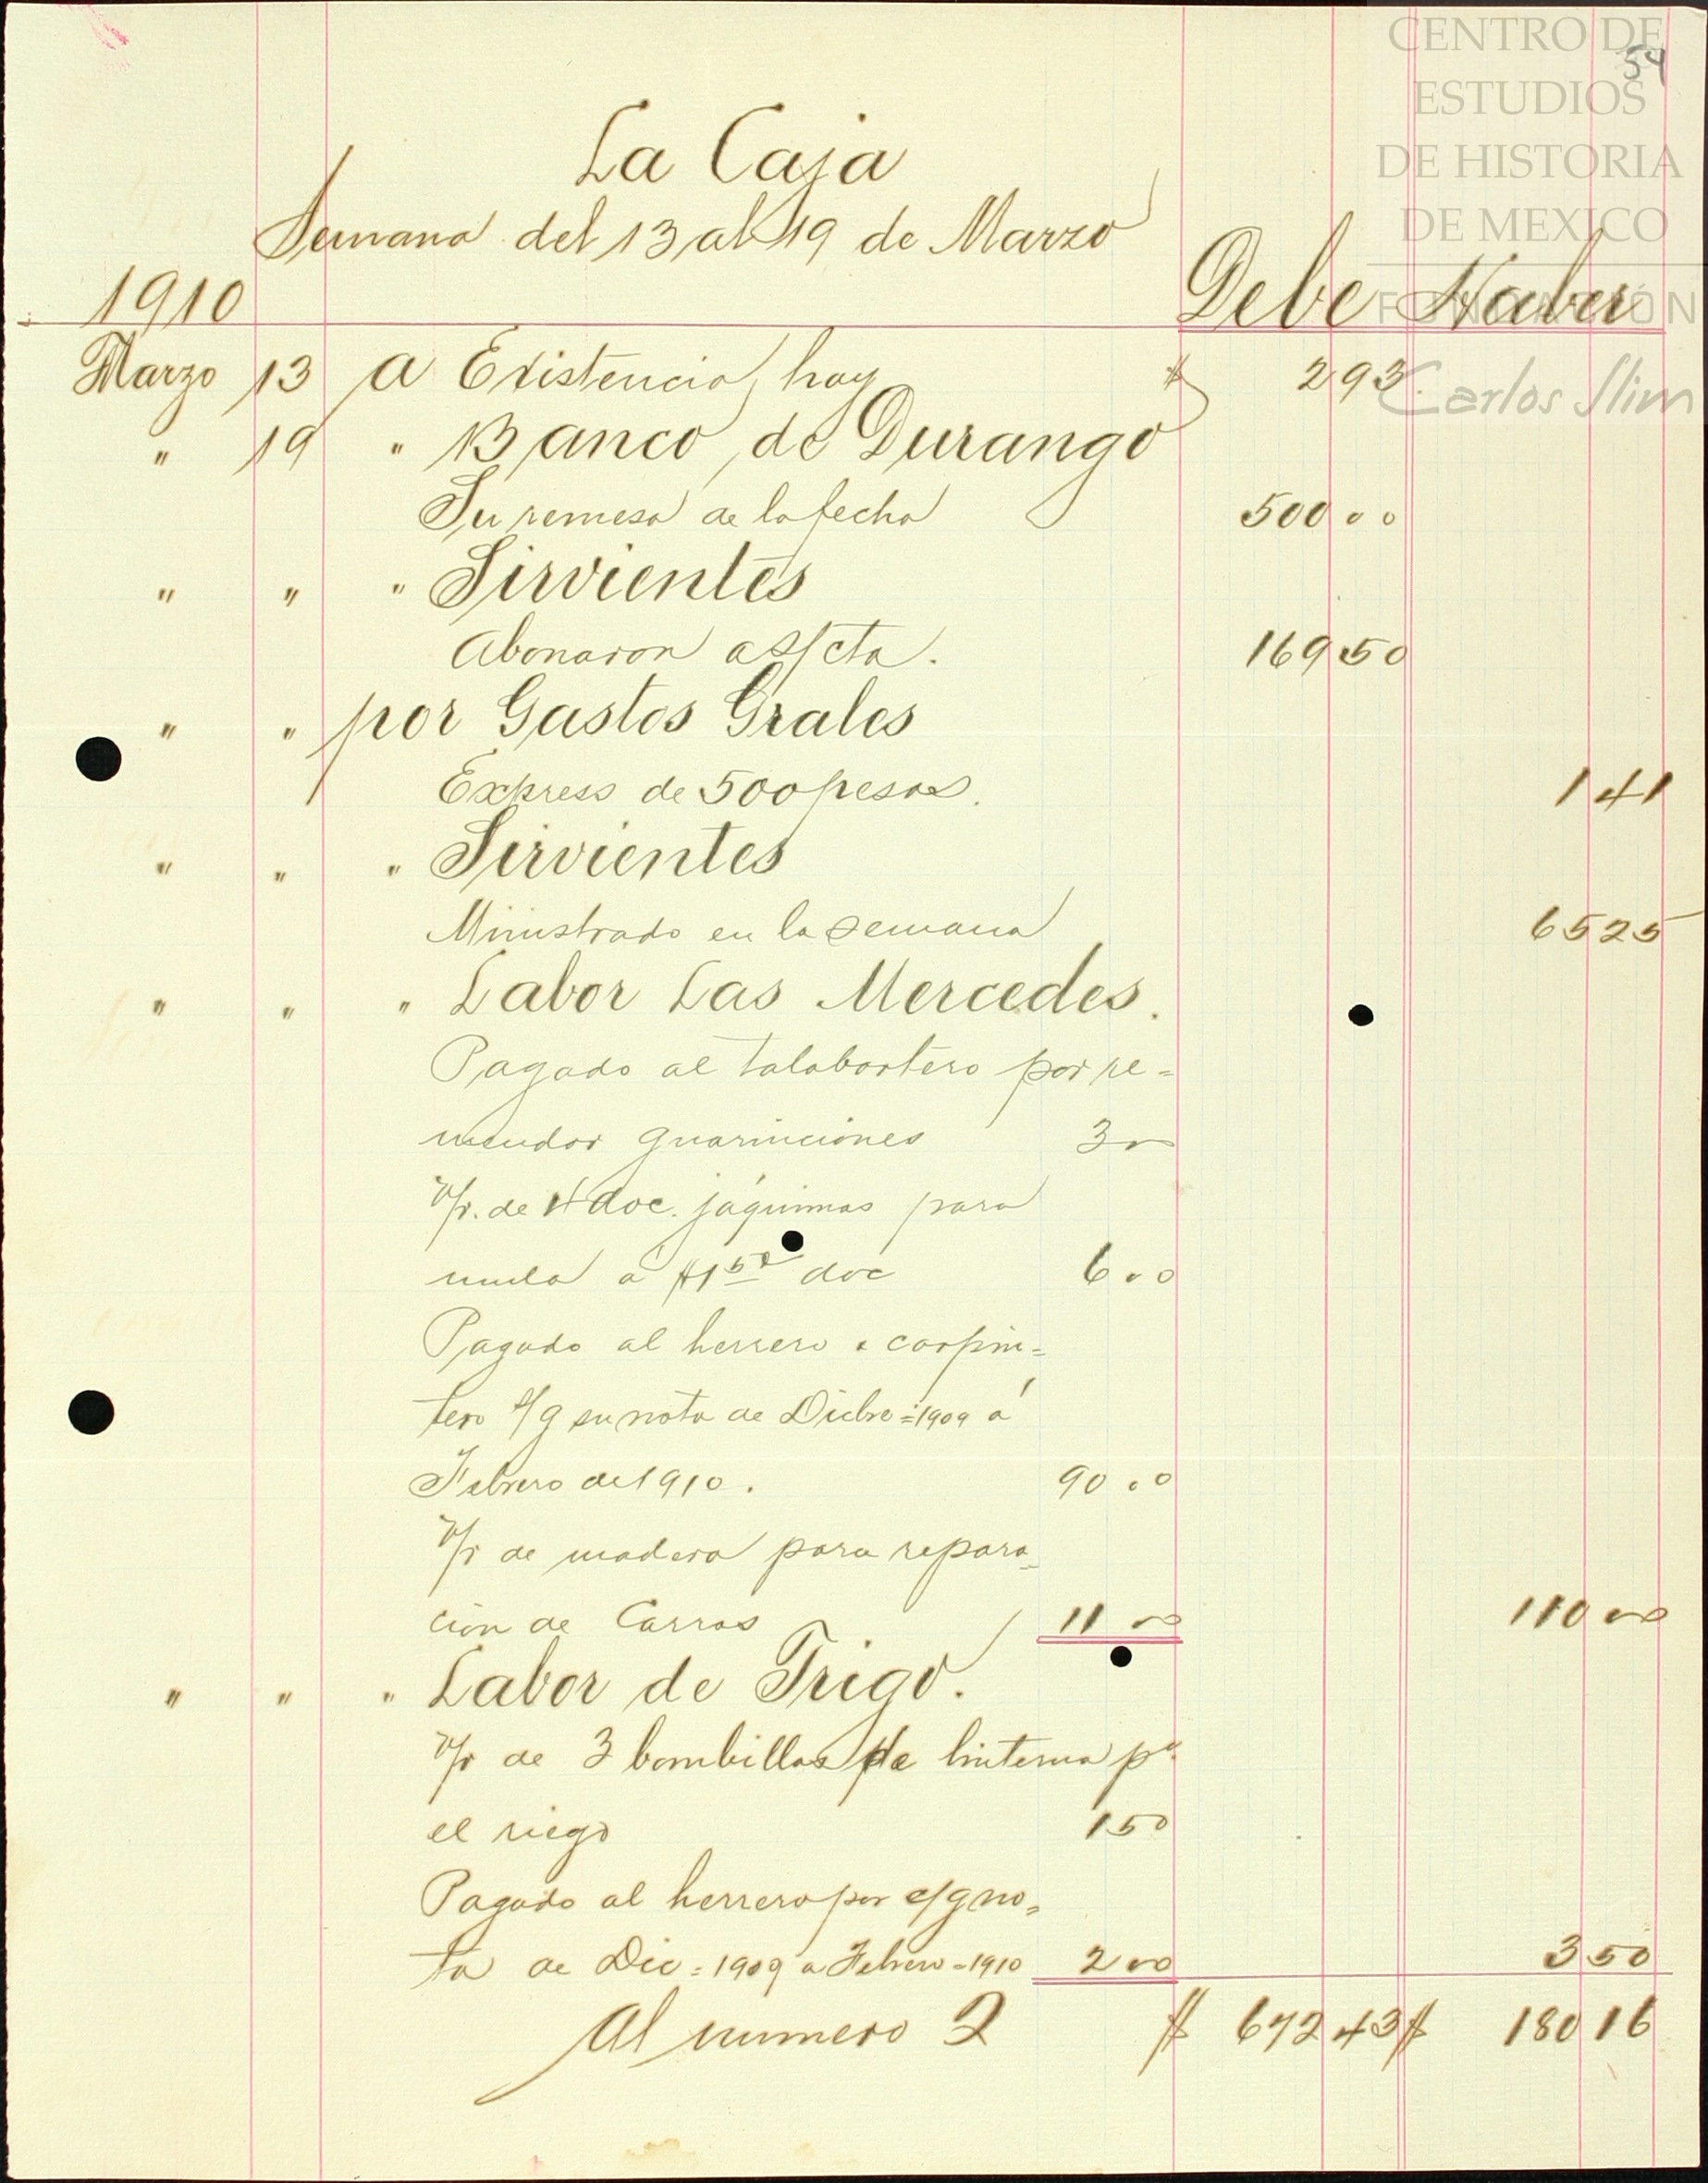 CENTRO DE
ESTUDIOS
DE HISTORIA
DE MEXICO
FUNDACIÓN
Carlos Slim
54
La Caja
Semana del 13 al 19 de Marzo
1910 Debe Haber
Marzo 13 A Existencia, hoy $ 2 93
" 19 " Banco de Durango
Su remesa de la fecha 500 00
" " " Sirvientes
Abonaron a s/cta. 169 50
" " por Gastos Grales
Express de 500 pesos. 1 41
" " " Sirvientes
Ministrado en la semana 65 25
" " " Labor Las Mercedes.
Pagado al talabartero por re=
mendar guarniciones 3 00
V/r. de 4 doc. jáquimas para
mula a $1 50 doc 6 00
Pagado al herrero o carpin=
tero s/g su nota de Dicbre=1909 á
Febrero de 1910. 90 00
V/r de madera para repara=
cion de Carros 11 00 110 00
" " " Labor de Trigo.
V/r de 3 bombillas de linterna pa
el riego 1 50
Pagado al herrero por s/g no=
ta de Dic=1909 a Febrero=1910 2 00 3 50
Al numero 2 $ 672 43 $ 180 16